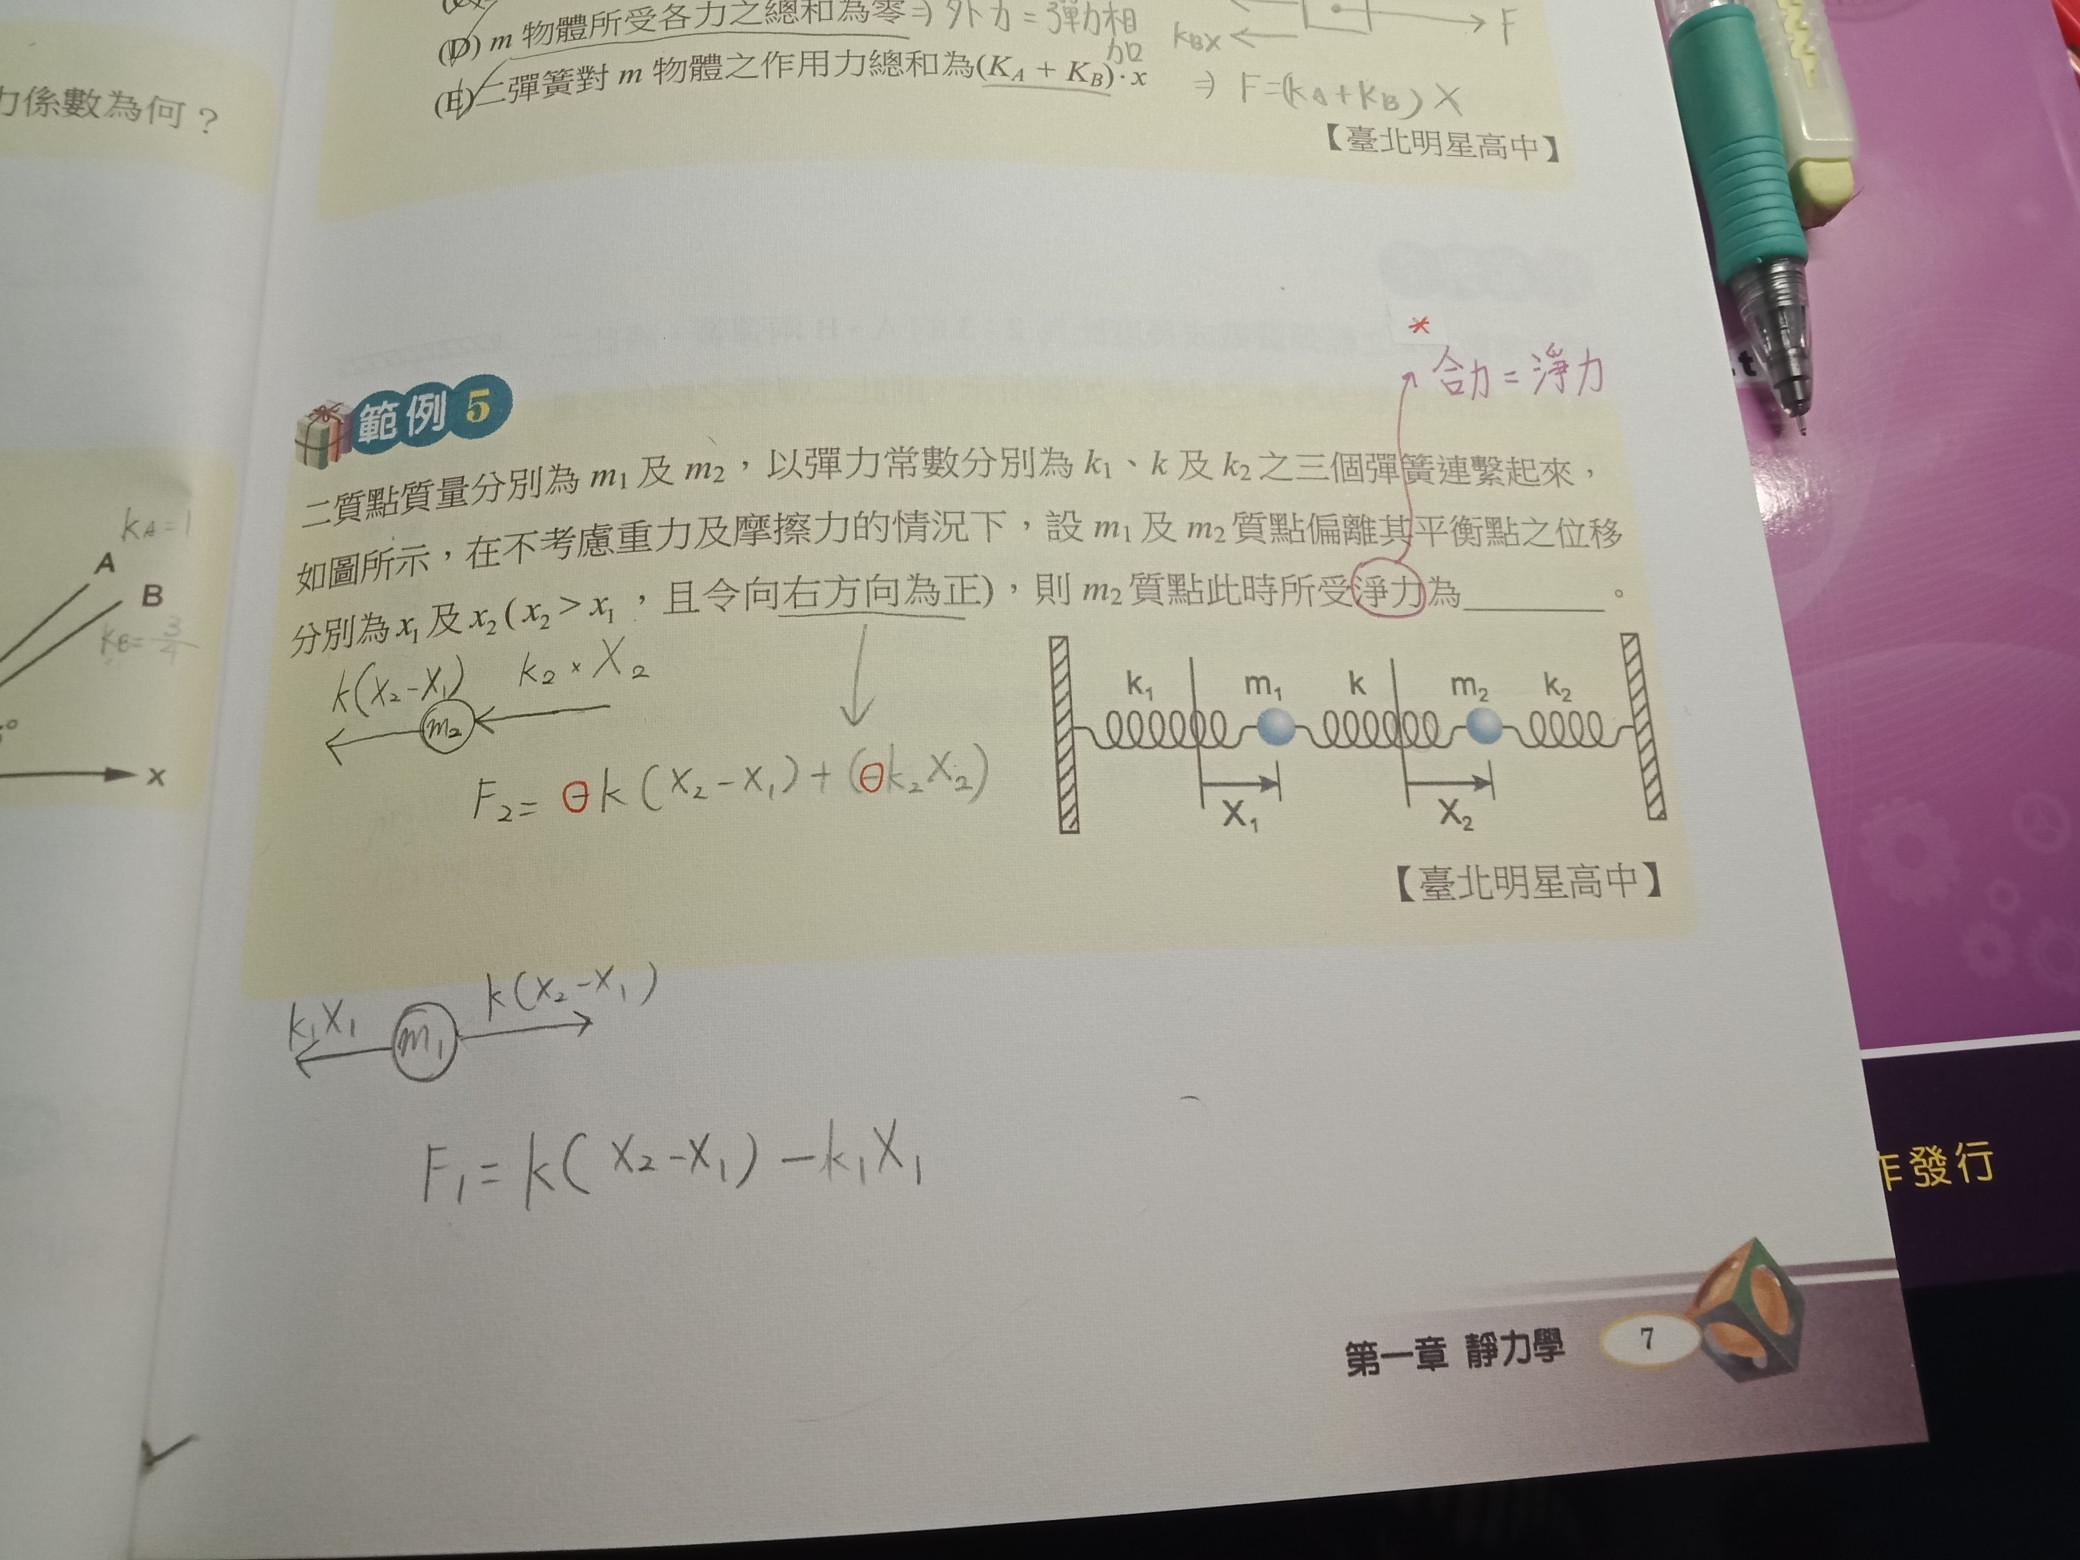 力係數為何？
(D) m 物體所受各力之總和為零⇒外力=彈力相加
(E) 二彈簧對 m 物體之作用力總和為(K_A + K_B)·x
k_B x
F
⇒ F=(k_A+k_B) x
【臺北明星高中】
*
合力=淨力
範例 5
二質點質量分別為 m₁ 及 m₂，以彈力常數分別為 k₁、k 及 k₂ 之三個彈簧連繫起來，
如圖所示，在不考慮重力及摩擦力的情況下，設 m₁ 及 m₂ 質點偏離其平衡點之位移
分別為 x₁ 及 x₂ (x₂ > x₁，且令向右方向為正)，則 m₂ 質點此時所受淨力為________。
k(x₂-x₁)
m₂
k₂ × x₂
F₂= -k(x₂-x₁)+(-k₂x₂)
k₁ m₁ k m₂ k₂
X₁ X₂
【臺北明星高中】
k₁x₁
m₁
k(x₂-x₁)
F₁= k(x₂-x₁) -k₁x₁
k_A=1
A
B
k_B= 3/4
x
第一章 靜力學 7
作發行